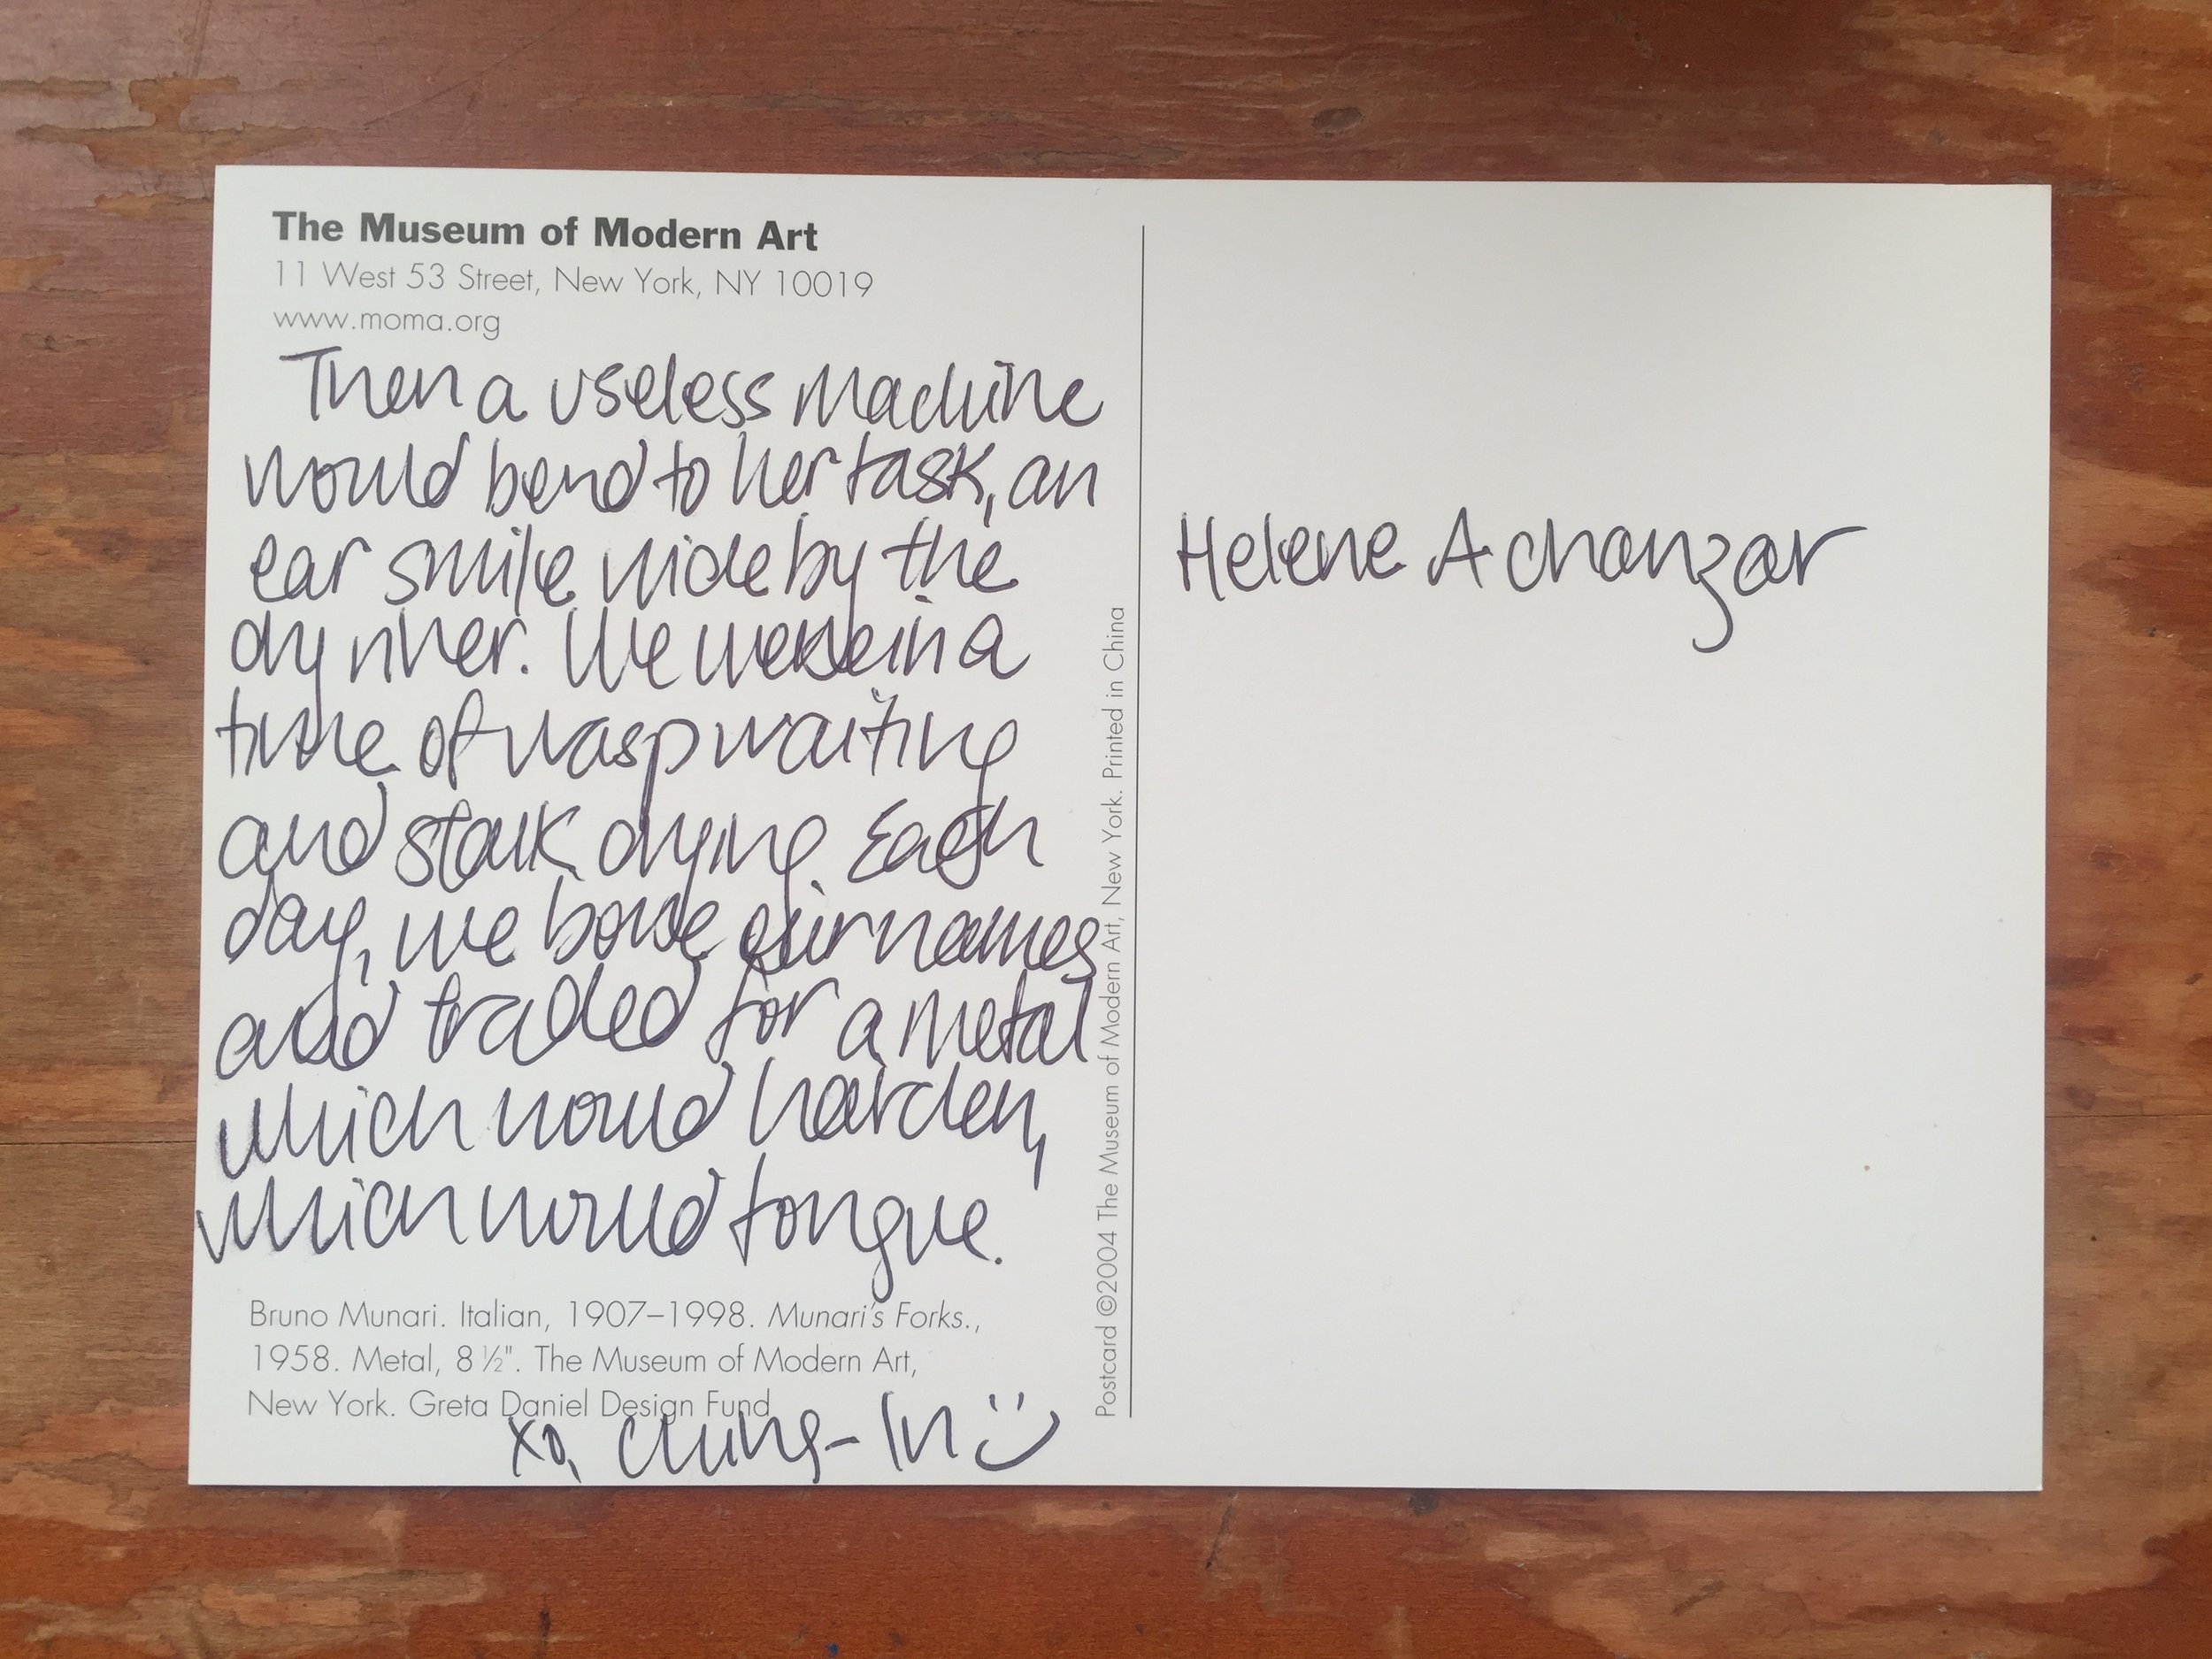 The Museum of Modern Art
11 West 53 Street, New York, NY 10019
www.moma.org
Then a useless machine
would bend to her task, an
ear smile wide by the
dry river. We were in a
time of wasp waiting
and stalk drying. Each
day, we bone our names
and traded for a metal
which would harden,
which would tongue.
Bruno Munari. Italian, 1907–1998. Munari's Forks.,
1958. Metal, 8 ½". The Museum of Modern Art,
New York. Greta Daniel Design Fund
xo, Ching-In :)
Postcard ©2004 The Museum of Modern Art, New York. Printed in China
Helene Achanzar